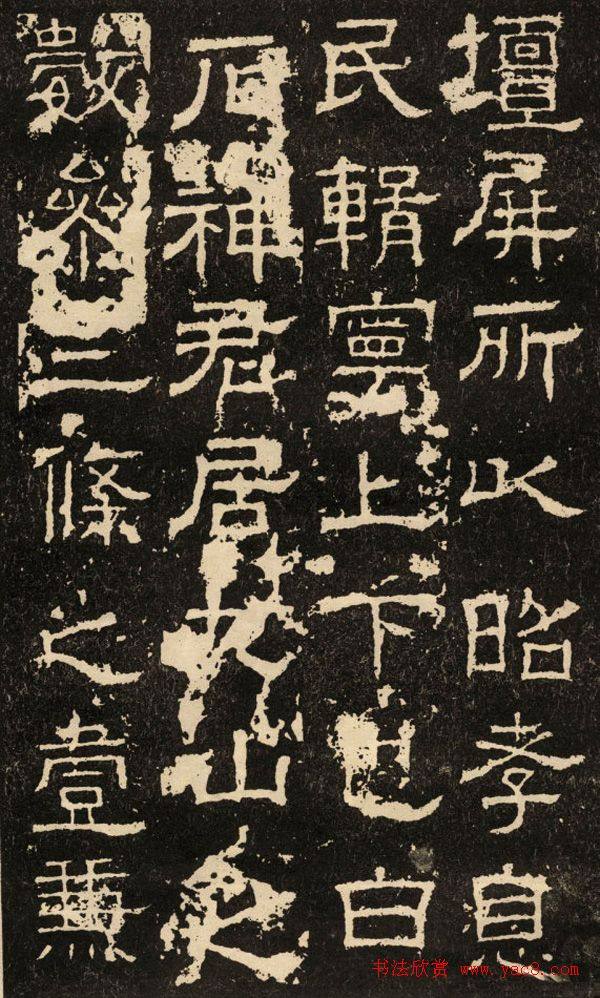 壇屏所以昭孝息
民輯寧上下也白
石神君居九山之
數參三條之壹兼
书法欣赏 www.yac8.com